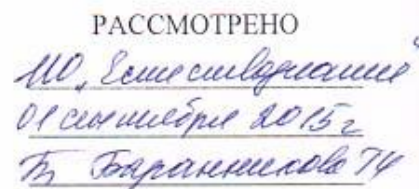 РАССМОТРЕНО
МО „Естествознание"
01 сентября 2015г
Баранникова